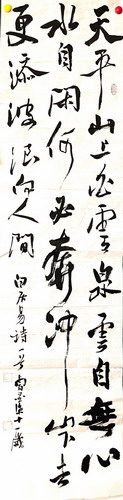 天平山上白雲泉雲自無心
水自閑何必奔冲山下去
更添波浪向人間
白居易詩一首
十一歲